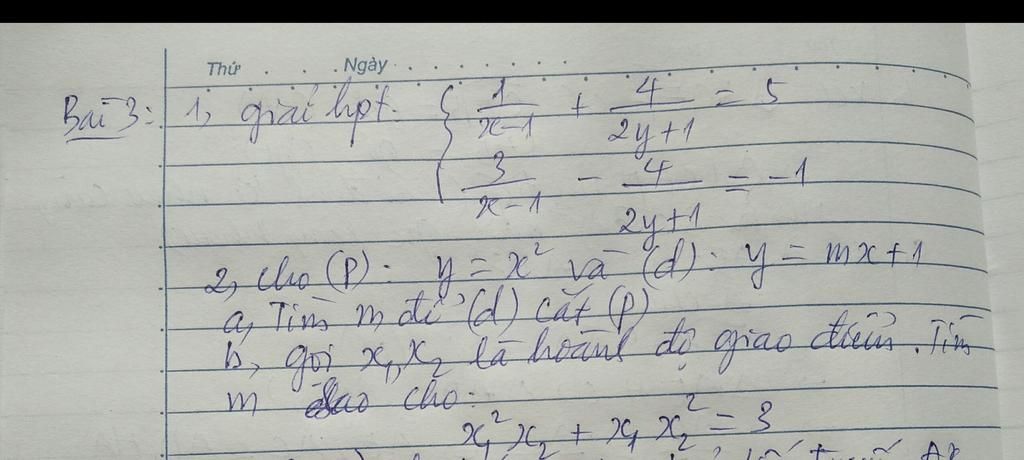 Thứ Ngày
Bài 3: 1, giải hpt: { 1/(x-1) + 4/(2y+1) = 5
3/(x-1) - 4/(2y+1) = -1
2, cho (P): y = x² và (d): y = mx + 1
a, Tìm m để (d) cắt (P)
b, gọi x₁, x₂ là hoành độ giao điểm. Tìm
m sao cho:
x₁²x₂ + x₁x₂² = 3